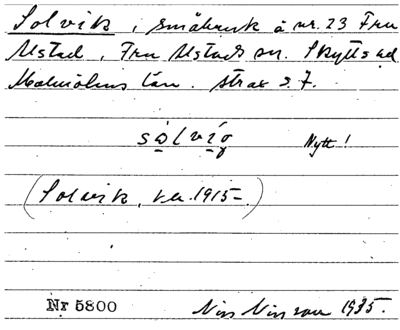 Solvik, småbruk å nr. 23 Fru
Alstad, Fru Alstads sn. Skytts hd
Malmöhus län. strax s. f.
Nytt!
(Solvik, ku. 1915-)
Nr 5800 Nils Nilsson 1935.